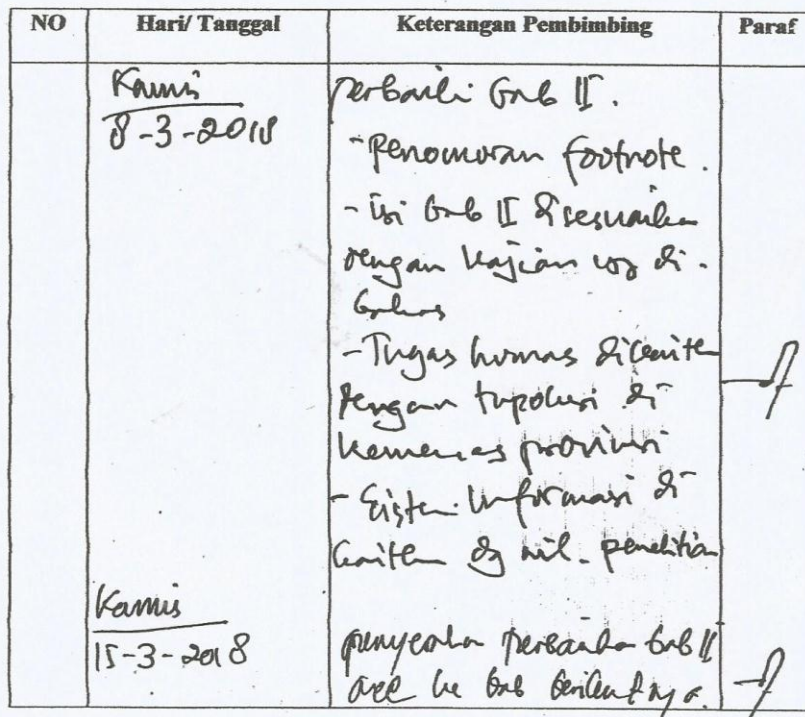 NO Hari/ Tanggal Keterangan Pembimbing Paraf
Kamis
8-3-2018
perbaiki Bab II.
- Penomoran footnote.
- isi Bab II disesuaikan
dengan kajian yg di.
bahas
- Tugas humas dikaitkn
dengan tupoksi di
Kemenag provinsi
- Sistem Informasi di
kaitkn dg mil. penelitian
Kamis
15-3-2018
penyerahan perbaikan Bab II
acc ke bab berikutnya.